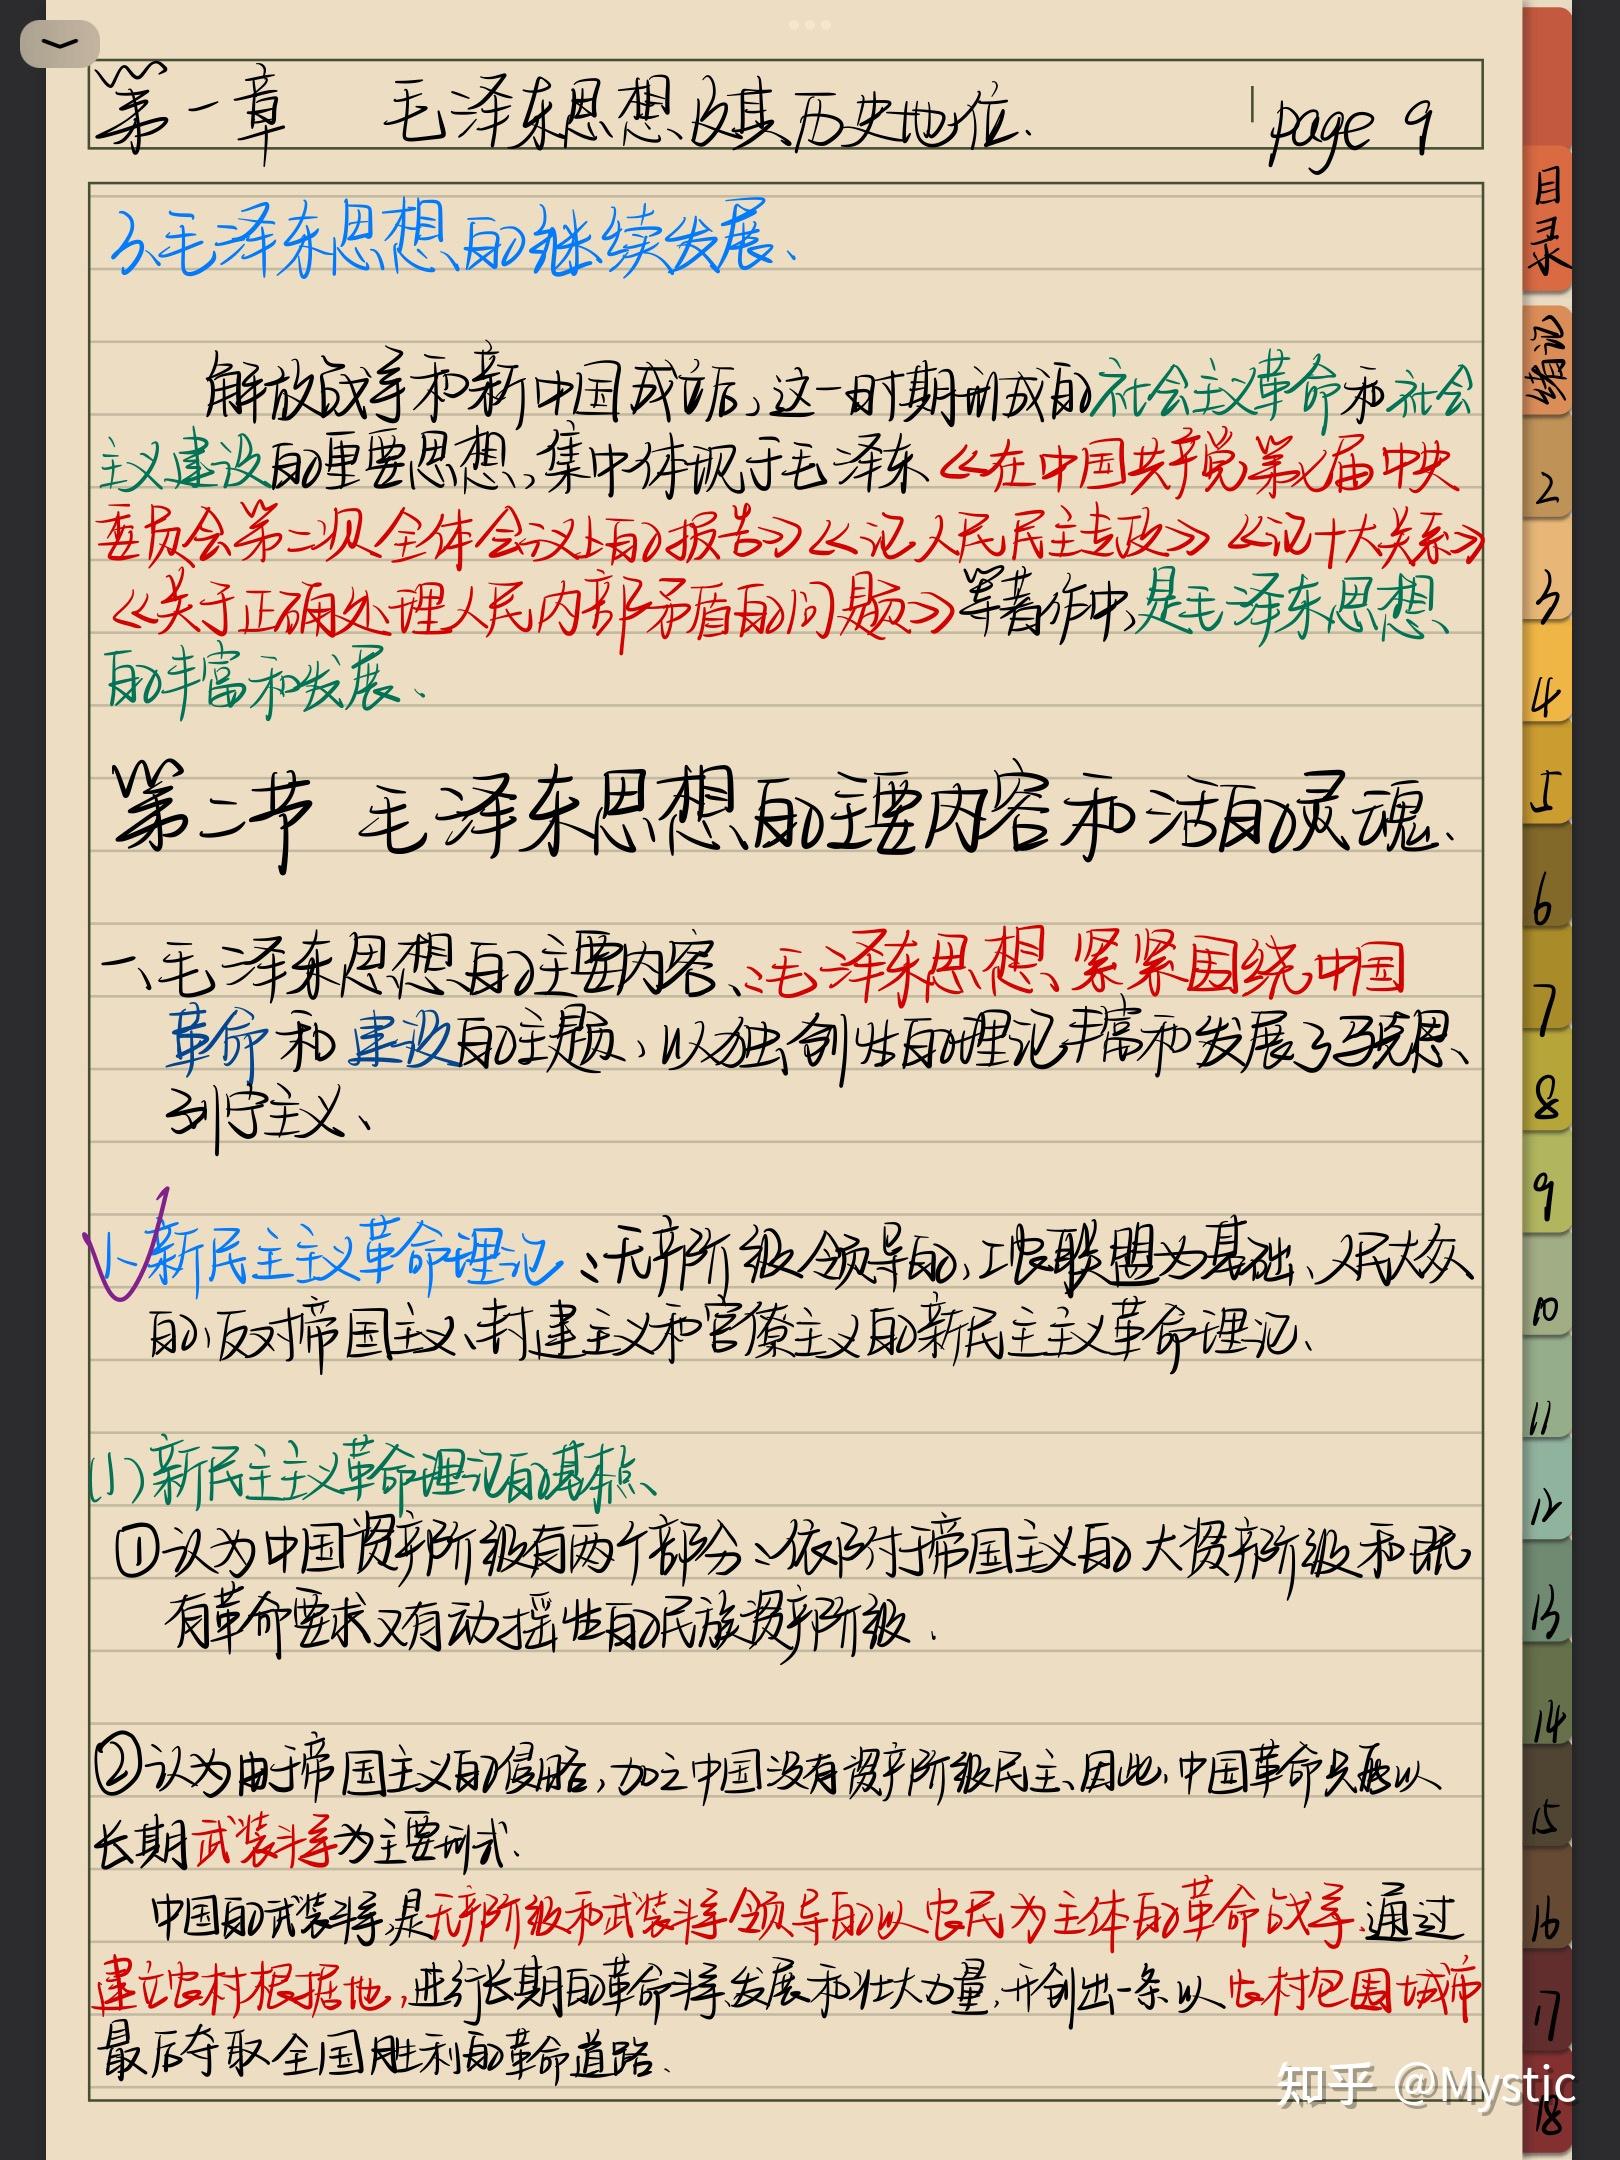 第一章 毛泽东思想及其历史地位.
page 9
3、毛泽东思想的继续发展、
解放战争和新中国成立后,这一时期形成的社会主义革命和社会
主义建设的重要思想,集中体现于毛泽东《在中国共产党第七届中央
委员会第二次全体会议上的报告》《论人民民主专政》《论十大关系》
《关于正确处理人民内部矛盾的问题》等著作中,是毛泽东思想
的丰富和发展、
第二节 毛泽东思想的主要内容和活的灵魂.
一、毛泽东思想的主要内容、:毛泽东思想紧紧围绕中国
革命和建设的主题、以独创性的理论丰富和发展了马克思、
列宁主义、
1、新民主主义革命理论:无产阶级领导的,工农联盟为基础、人民大众
的,反对帝国主义、封建主义和官僚主义的新民主主义革命理论、
(1)新民主主义革命理论的基本点、
①认为中国资产阶级有两个部分:依附于帝国主义的大资产阶级和既
有革命要求又有动摇性的民族资产阶级.
②认为由于帝国主义的侵略,加之中国没有资产阶级民主、因此,中国革命只能以
长期武装斗争为主要形式.
中国的武装斗争,是无产阶级和武装斗争领导的以农民为主体的革命战争、通过
建立农村根据地,进行长期的革命斗争,发展和壮大力量,开创出一条以农村包围城市
最后夺取全国胜利的革命道路.
目录
绪论
2
3
4
5
6
7
8
9
10
11
12
13
14
15
16
17
18
知乎 @Mystic